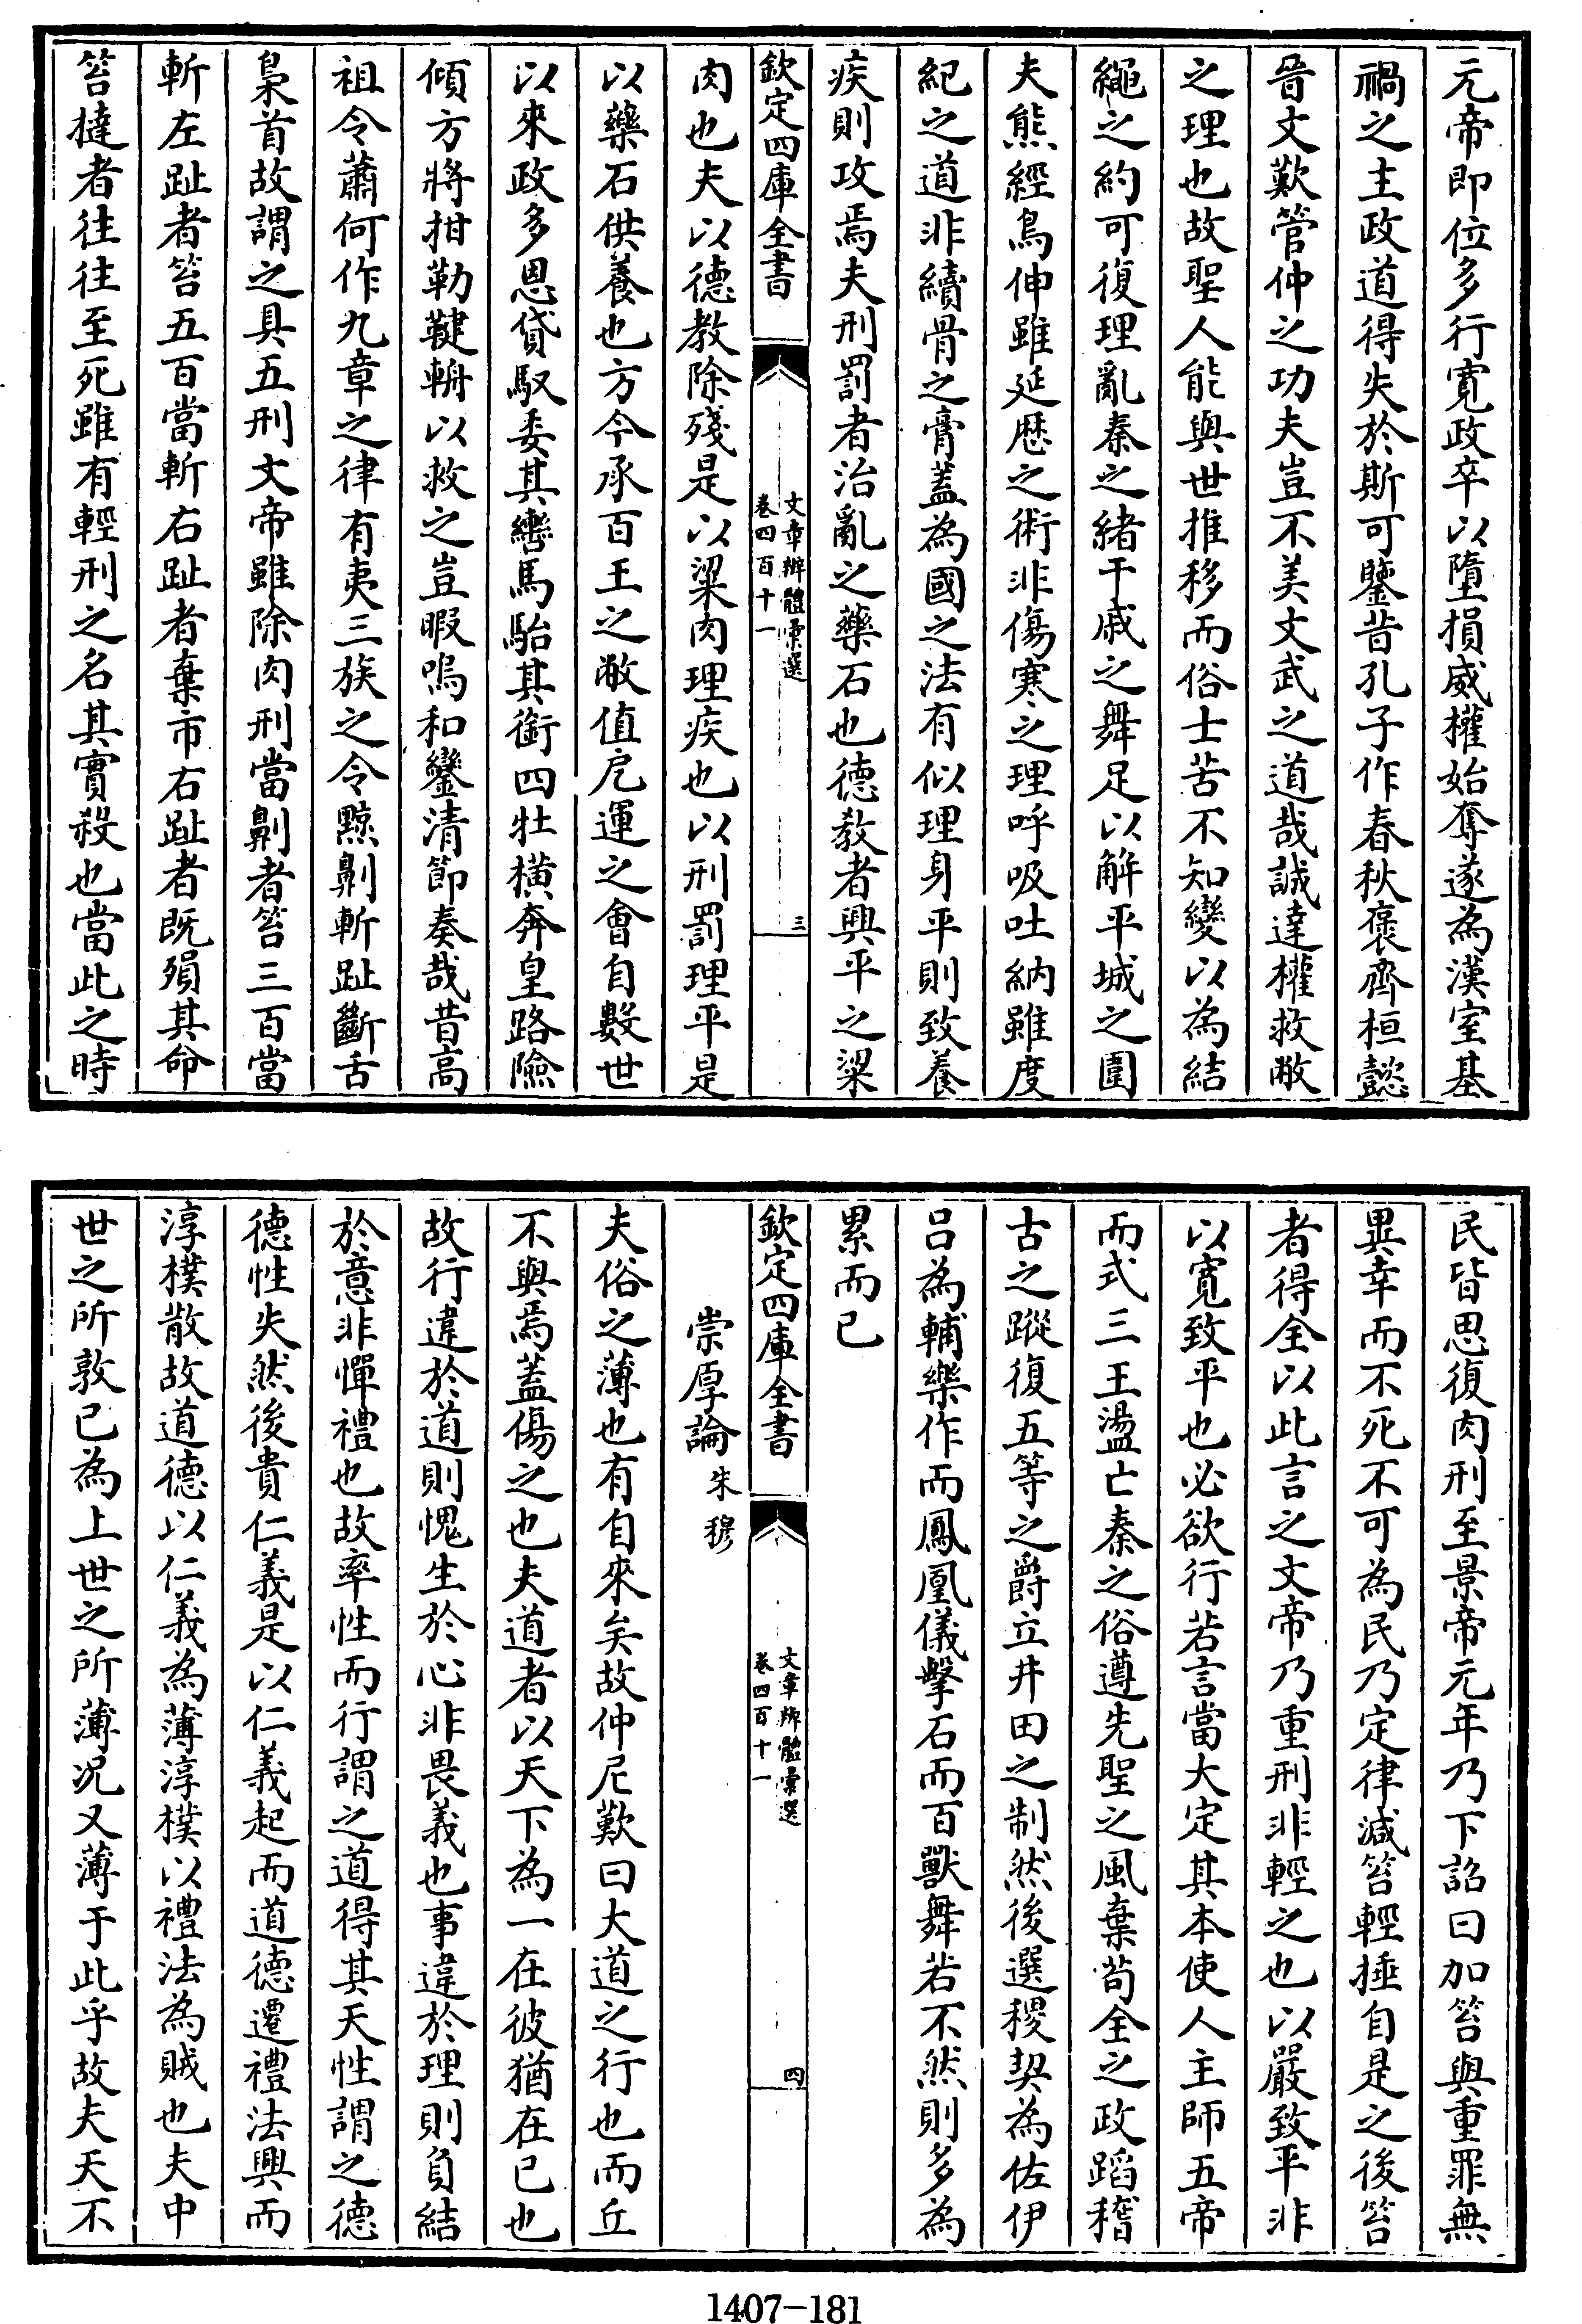 元帝即位多行寛政卒以墮損威權始奪遂為漢室基
禍之主政道得失於斯可鑒昔孔子作春秋褒齊桓懿
晉文歎管仲之功夫豈不美文武之道哉誠達權救敝
之理也故聖人能與世推移而俗士苦不知變以為結
繩之約可復理亂秦之緒干戚之舞足以解平城之圍
夫熊經鳥伸雖延歴之術非傷寒之理呼吸吐納雖度
紀之道非續骨之膏蓋為國之法有似理身平則致養
疾則攻焉夫刑罰者治亂之藥石也德教者興平之粱
欽定四庫全書
文章辨體彙選
卷四百十一
三
肉也夫以德教除殘是以粱肉理疾也以刑罰理平是
以藥石供養也方今承百王之敝值戹運之會自數世
以來政多恩貸馭委其轡馬駘其銜四牡橫奔皇路險
傾方將拑勒鞬輈以救之豈暇鳴和鑾清節奏哉昔高
祖令蕭何作九章之律有夷三族之令黥劓斬趾斷舌
梟首故謂之具五刑文帝雖除肉刑當劓者笞三百當
斬左趾者笞五百當斬右趾者棄市右趾者既殞其命
笞撻者往往至死雖有輕刑之名其實殺也當此之時
民皆思復肉刑至景帝元年乃下詔曰加笞與重罪無
異幸而不死不可為民乃定律減笞輕捶自是之後笞
者得全以此言之文帝乃重刑非輕之也以嚴致平非
以寛致平也必欲行若言當大定其本使人主師五帝
而式三王盪亡秦之俗遵先聖之風棄苟全之政蹈稽
古之蹤復五等之爵立井田之制然後選稷契為佐伊
吕為輔樂作而鳳凰儀擊石而百獸舞若不然則多為
累而已
欽定四庫全書
文章辨體彙選
卷四百十一
四
崇厚論 朱穆
夫俗之薄也有自來矣故仲尼歎曰大道之行也而丘
不與焉蓋傷之也夫道者以天下為一在彼猶在已也
故行違於道則愧生於心非畏義也事違於理則負結
於意非憚禮也故率性而行謂之道得其天性謂之德
德性失然後貴仁義是以仁義起而道德遷禮法興而
淳樸散故道德以仁義為薄淳樸以禮法為賊也夫中
世之所敦已為上世之所薄况又薄于此乎故夫天不
1407-181